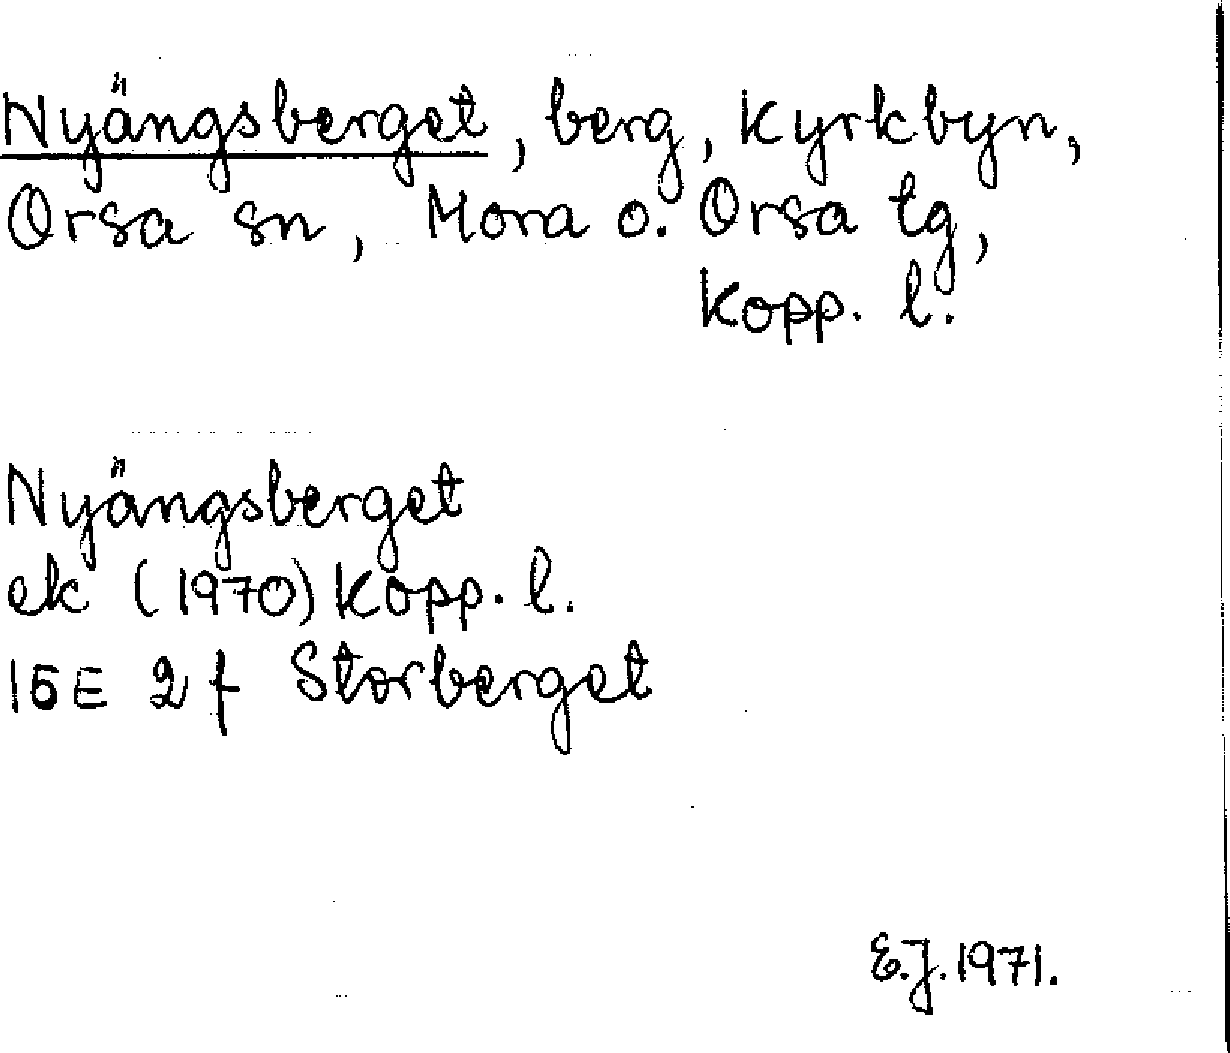 Nyängsberget, berg, Kyrkbyn,
Orsa sn, Mora o. Orsa tg,
Kopp. l.
Nyängsberget
ek (1970) Kopp. l.
15E 2f Storberget
E.J. 1971.